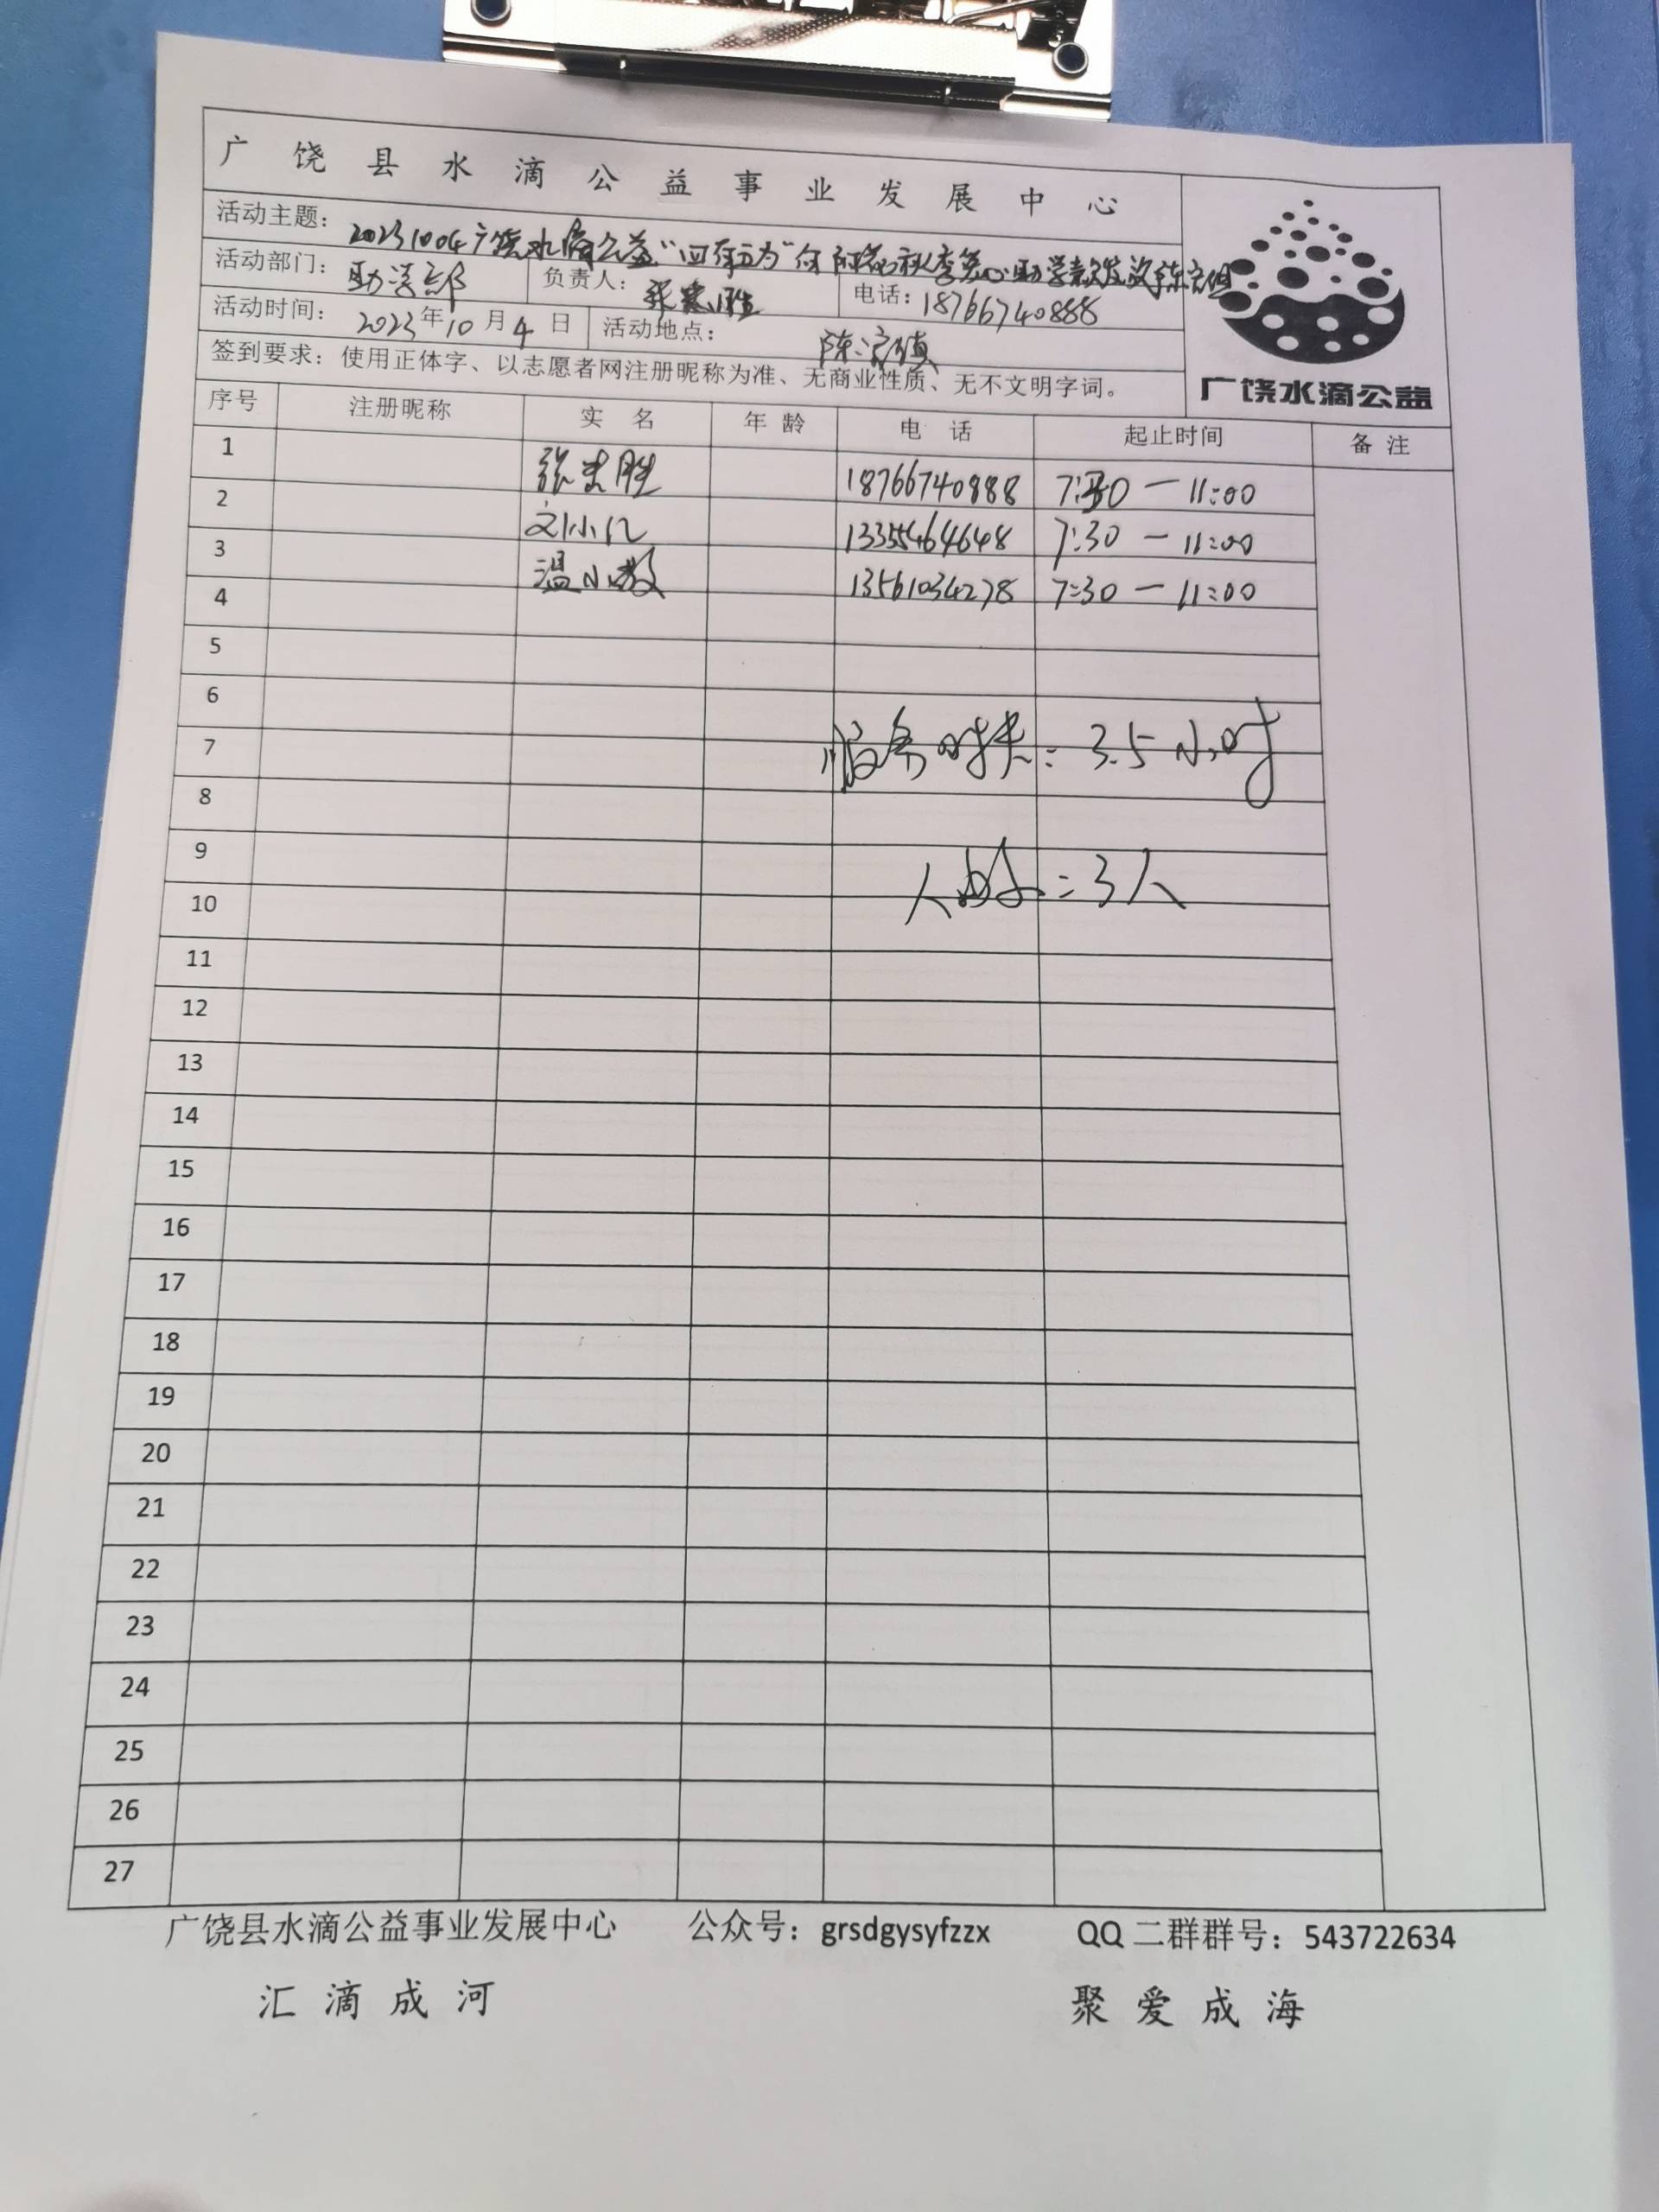 广饶县水滴公益事业发展中心
活动主题：20231004广饶水滴公益
活动部门：助学部 负责人： 电话：18766740888
活动时间：2023年10月4日 活动地点：陈官镇
签到要求：使用正体字、以志愿者网注册昵称为准、无商业性质、无不文明字词。
广饶水滴公益
序号 注册昵称 实名 年龄 电话 起止时间 备注
1 18766740888 7:30－11:00
2 13355464648 7:30－11:00
3 温小教 13561034278 7:30－11:00
4
5
6
服务时长：3.5小时
7
8
9
人数：3人
10
11
12
13
14
15
16
17
18
19
20
21
22
23
24
25
26
27
广饶县水滴公益事业发展中心 公众号：grsdgysyfzzx QQ二群群号：543722634
汇滴成河 聚爱成海